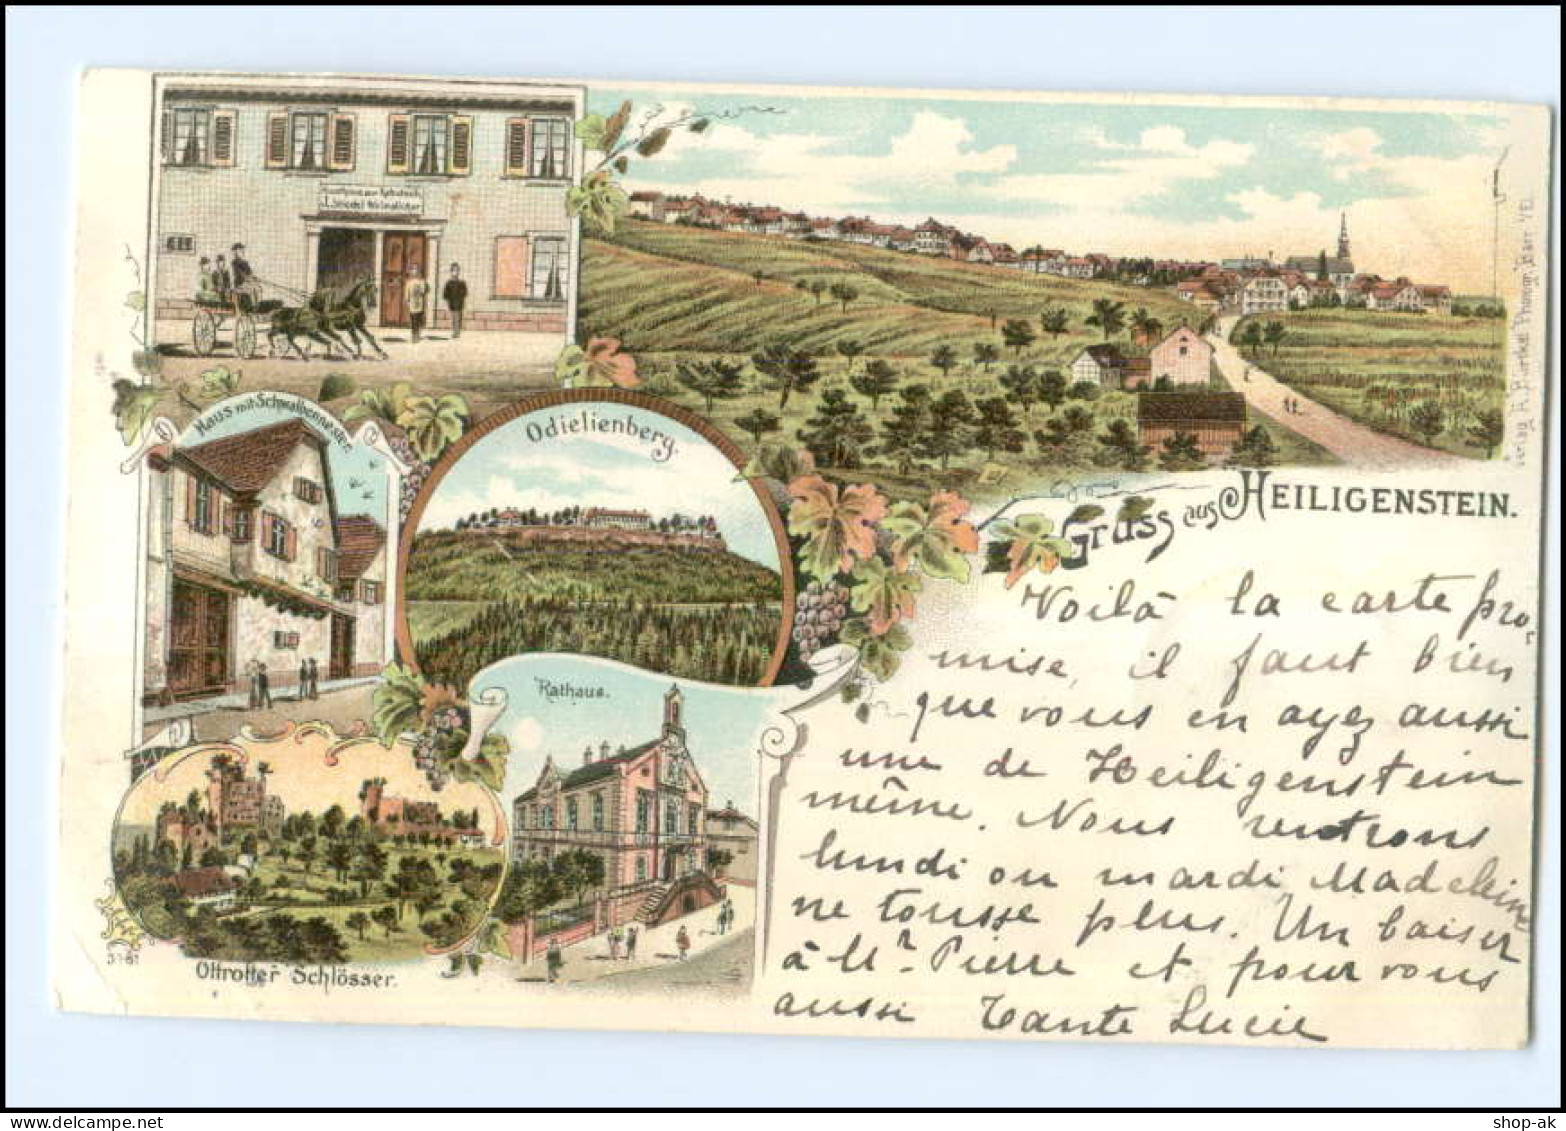 Haus mit Schwalbennester.
Odielienberg.
Rathaus.
Ottrotter Schlösser.
3161
Gruss aus HEILIGENSTEIN.
Voilà la carte pro-
mise, il faut bien
que vous en ayez aussi
une de Heiligenstein
même. Nous rentrons
lundi ou mardi Madeleine
ne tousse plus. Un baiser
à Mr. Pierre et pour vous
aussi Tante Lucie
shop-ak